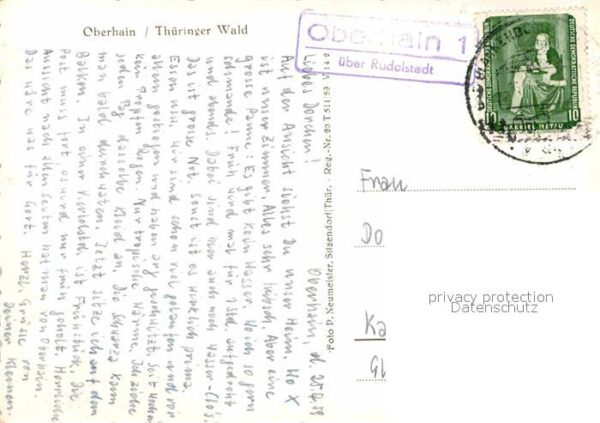 Oberhain / Thüringer Wald
Oberhain 1
über Rudolstadt
DEUTSCHE DEMOKRATISCHE REPUBLIK
10
GABRIEL METSU
10
Foto P. Neumeister, Sitzendorf/Thür. · Reg.-Nr. 20 T 511 59 V 14 2
Oberhain, d.
Liebes Dorchen!
Auf der Ansicht siehst Du unser Heim. Wo X
ist unser Zimmer. Alles sehr hübsch. Aber eine
große Panne: Es gibt kein Wasser. Wo ich so gern
schwimme! Früh wird mal für 1 Std aufgedreht
und abends. Dabei sind hier auch noch Wasser-Clos.
Das ist große Not. Sonst ist es wirklich prima.
Essen usw. Wir sind schon viel gelaufen und vor
allem gestiegen und haben arg geschwitzt. Seit Wochen
kein Tropfen Regen. Nur tropische Wärme. Ich ziehe
jeden Tag dasselbe Kleid an, die Schwarze kann
man bald durchwaten. Jetzt sitze ich auf dem
Balkon. In einer Viertelstd. ist Frühstück, die
Post muss fort es wird nur früh geholt. Herrliche
Aussicht nach allen Seiten hat man von Oberhain.
Das wäre was für Gert. Herzl. Grüße von
Deiner Kleinen
Frau
Do
Ka
Gl
privacy protection
Datenschutz